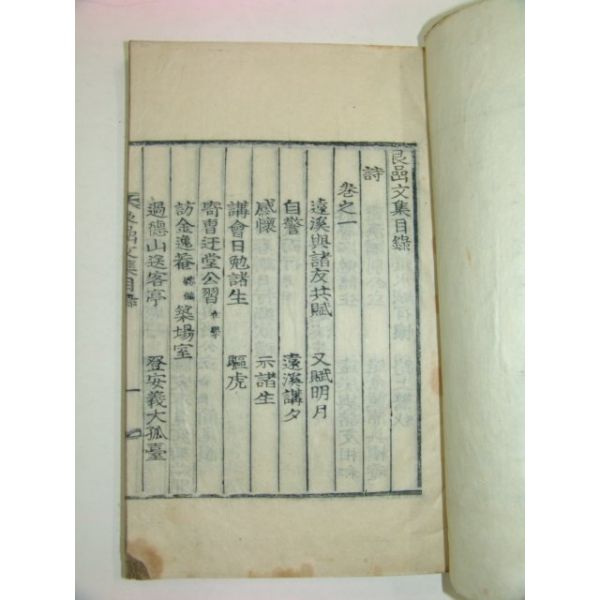 艮嵒文集目錄
卷之一
詩
遠溪與諸友共賦 又賦明月
自警 遠溪講夕
感懷 示諸生
講會日勉諸生 驅虎
寄曺迂堂公習
訪金逸菴 築場室
過德山送客亭 登安義大孤臺
艮嵒文集目錄 一